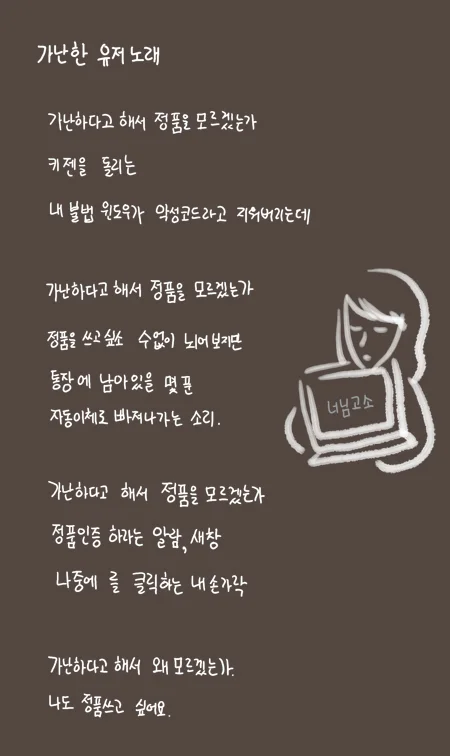 가난한 유저 노래
가난하다고 해서 정품을 모르겠는가
키젠을 돌리는
내 불법 윈도우가 악성코드라고 지워버리는데
가난하다고 해서 정품을 모르겠는가
정품을 쓰고싶소 수없이 뇌어보지만
통장에 남아있을 몇 푼
자동이체로 빠져나가는 소리.
가난하다고 해서 정품을 모르겠는가
정품인증 하라는 알람, 새창
나중에 를 클릭하는 내 손가락
가난하다고 해서 왜 모르겠는가.
나도 정품쓰고 싶어요.
너님고소